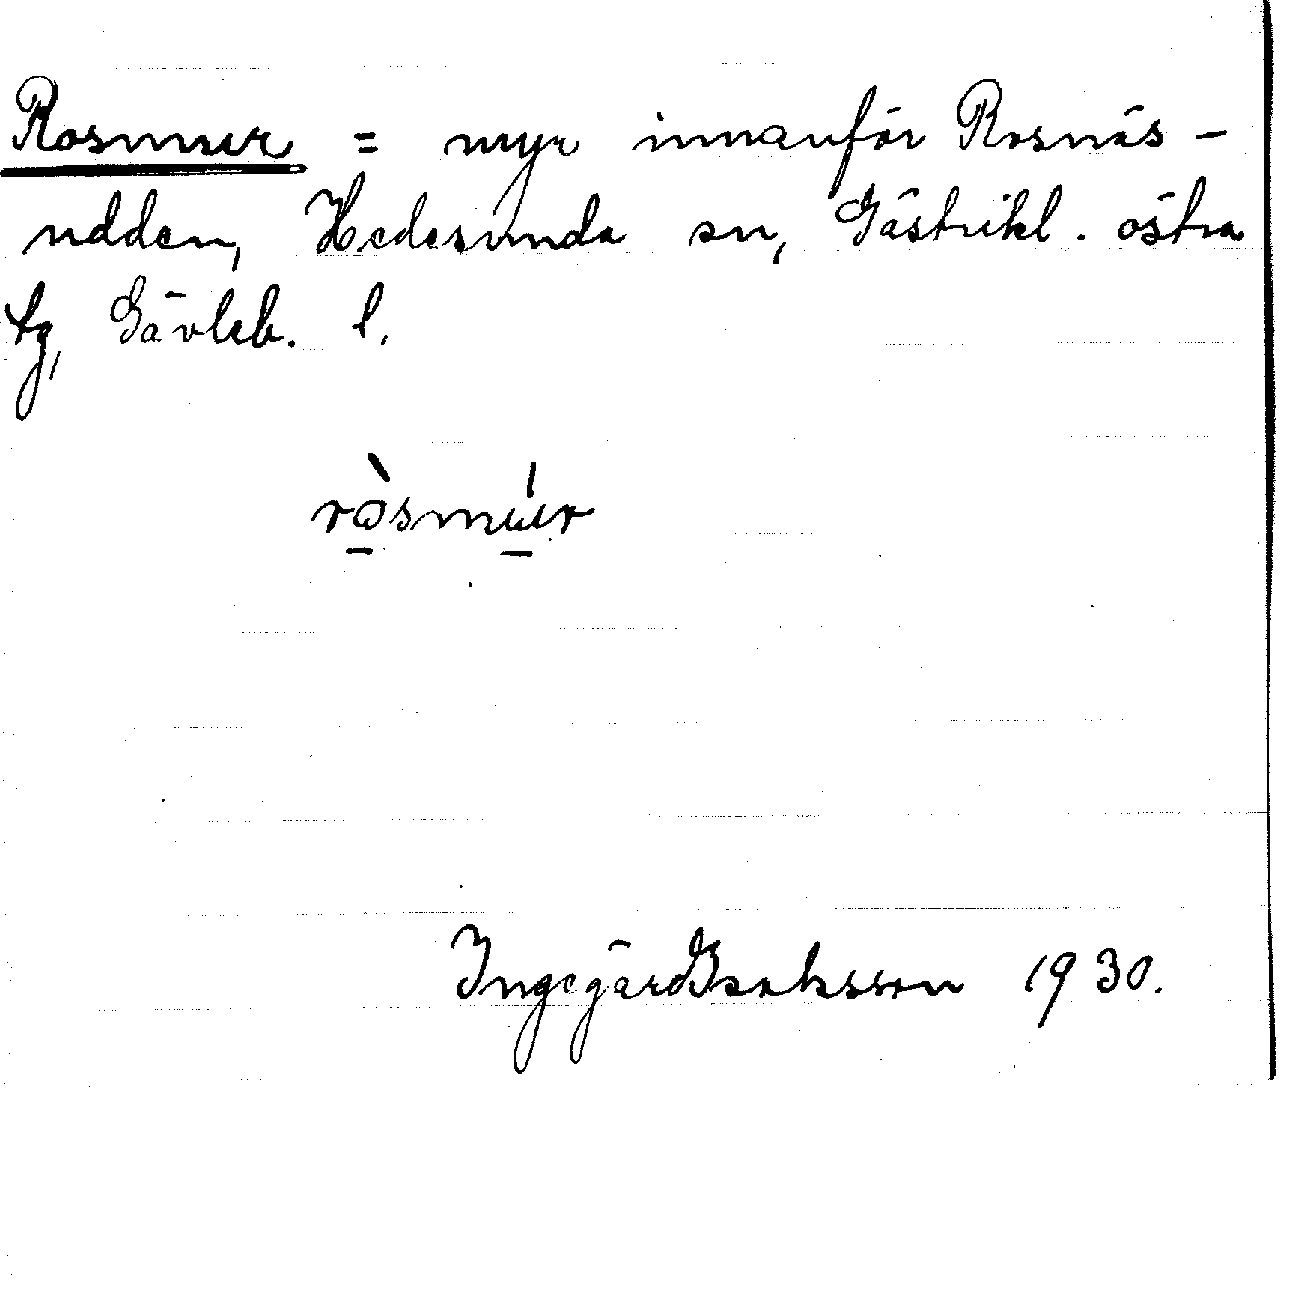 Rosmur = myr innanför Rosnäs-
udden, Hedesunda sn, Gästrikl. östra
tg, Gävleb. l.
ròsmúr
Ingegärd Isaksson 1930.